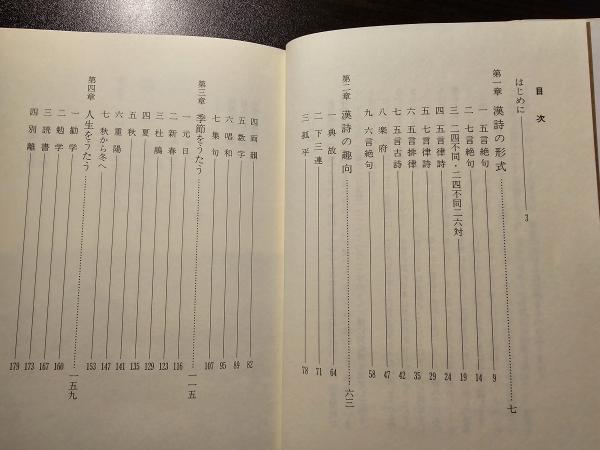 目次
はじめに 3
第一章 漢詩の形式 七
一 五言絶句 9
二 七言絶句 14
三 二四不同・二四不同二六対 19
四 五言律詩 24
五 七言律詩 29
六 五言排律 35
七 五言古詩 42
八 楽府 47
九 六言絶句 58
第二章 漢詩の趣向 六三
一 典故 64
二 下三連 71
三 孤平 78
四 両韻 82
五 数字 89
六 唱和 95
七 集句 107
第三章 季節をうたう 一一五
一 元日 116
二 新春 123
三 杜鵑 129
四 夏 135
五 秋 141
六 重陽 147
七 秋から冬へ 153
第四章 人生をうたう 一五九
一 勧学 160
二 勉学 167
三 読書 173
四 別離 179